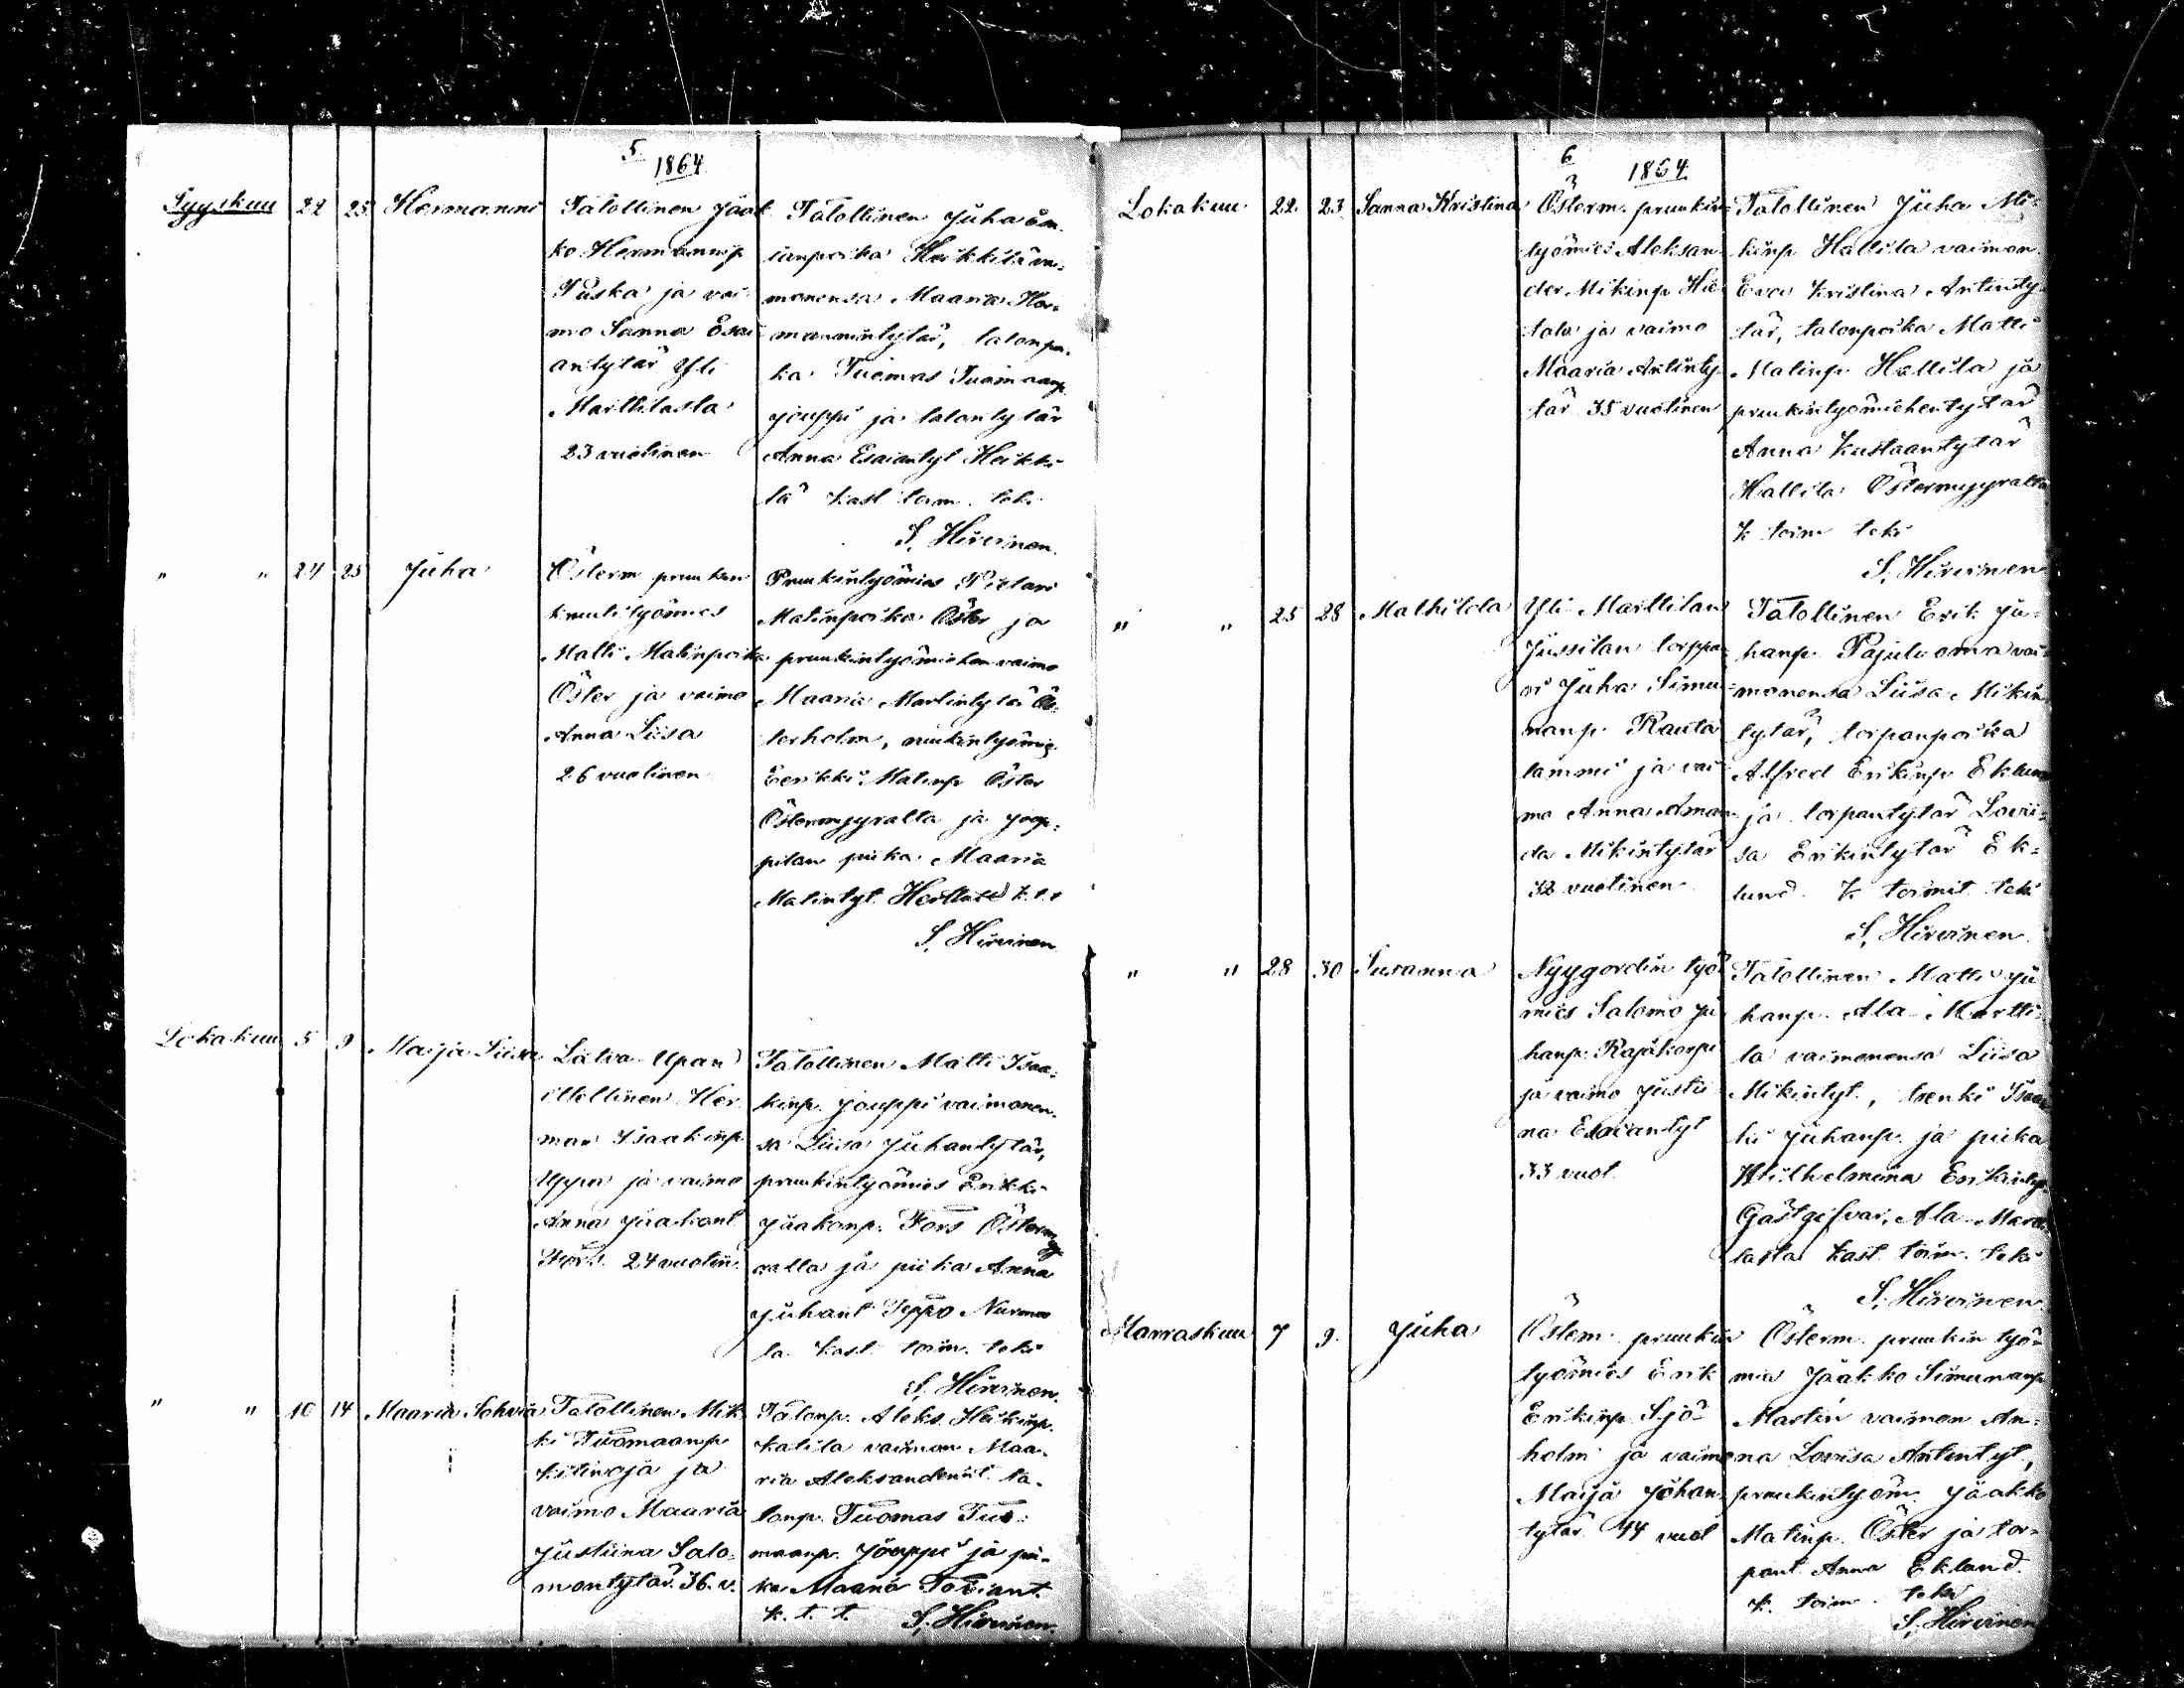 5
1864
Syyskuu 22 25 Hermanni
Talollinen Jaak
ko Hermanninp
Puska ja vai
mo Sanna Esai
antytär Yli
Marttilasta
23 vuotinen
Talollinen Juha
ianpoika Heikkilä vai=
monensa Maaria Her=
mannintytär, talonpoi
ka Tuomas Tuomaanp
Jouppi ja talontytär
Anna Esaiantyt Heikki
lä kast toim. teki
S. Hirvinen.
" " 24 25 Juha
Österm pruukin
työmies
Matti Matinpoika
Öster ja vaimo
Anna Liisa
26 vuotinen
Pruukintyömies Pietari
Matinpoika Öster ja
pruukintyömiehen vaimo
Maaria Martintytär Ös=
terholm, ruukintyömies
Eerikki Matinp Öster
Östermyyralta ja Joup=
pilan piika Maaria
Matintyt. k.t.t
S. Hirvinen
Lokakuu 5 9 Maija Liisa
Latva-Upan
itellinen Her
man Isaakinp
Uppa ja vaimo
Anna Jaakont
Fors. 24 vuotin.
Talollinen Matti Isaa=
kinp. Jouppi vaimonen=
sa Liisa Juhantytär,
pruukintyömies Erikki
Jaakonp. Fors Östermyy
ralla ja piika Anna
Juhant Teppo Nurmo
la kast. toim. teki
S. Hirvinen.
" " 10 14 Maaria Sohvia
Talollinen Mik
ki Tuomaanp
Kitinoja ja
vaimo Maaria
Justiina Salo=
montytär. 36. v.
Talonp. Aleks Heikinp.
Katila vaimon Maa=
ria Aleksanderint. ta=
lonp. Tuomas Tuo=
maanp. Jouppi ja pii=
ka Maaria Tobiant.
k. t. t. S. Hirvinen.
6
1864.
Lokakuu 22. 23 Sanna Kristina
Österm. pruukin
työmies Aleksan
der Mikinp Hie
tala ja vaimo
Maaria Antinty
tär 35 vuotinen
Talollinen Juha Mi=
kinp Hallila vaimon
Eva Kristina Antinty
tär, talonpoika Matti
Matinp. Hallila ja
pruukintyömiehentytär
Anna Kustaantytär
Hallila Östermyyralta
K toim teki
S. Hirvinen
" " 25 28 Mathilda
Yli Marttilan
Jussilan torppa
ri Juha Simu
nanp. Rauta
lammi ja vai
mo Anna Aman
da Mikintytär
32 vuotinen
Talollinen Erik Ju=
hanp. Pajuluoma vai=
monensa Liisa Mikin
tytär, torpanpoika
Alfred Erikinp Eklund
ja torpantytär Lovii=
sa Erikintytär Ek=
lund. K toimit. teki
S. Hirvinen.
" " 28 30 Susanna
Nyygordin työ
mies Salomo Ju
hanp. Rajakorpi
ja vaimo Justii
na Esaiantyt
33 vuot.
Talollinen Matti Ju
hanp. Ala-Martti=
la vaimonensa Liisa
Mikintyt., trenki Isaa
ki Juhanp. ja piika
Wilhelmiina Erikinty.
Gästgifvar, Ala-Mart
lasta kast. toim. teki
S. Hirvinen
Marraskuu 7 9. Juha
Österm. pruukin
työmies Erik
Erikinp. Sjö=
holm ja vaimo
Maija Johan
tytär 44 vuot
Österm. pruukin työ=
mies Jaakko Simunanp
Martin vaimon An=
na Lovisa Antintyt,
pruukintyöm. Jaakko
Matinp. Öster ja tor=
pant. Anna Eklund.
k. toim. teki
S. Hirvinen